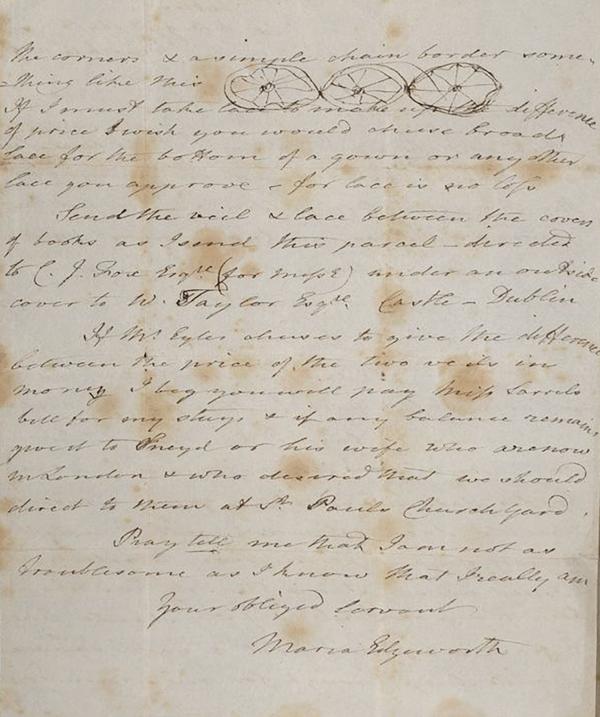 the corners & a simple chain border some-
-thing like this
If I must take lace to make up the difference
of price I wish you would chuse broad
lace for the bottom of a gown or any other
lace you approve - for lace is no loss
Send the veil & lace between the covers
of books as I send this parcel - directed
to C. J. Foxe Esqre (for miss E) under an outside
cover to W. Taylor Esqre. Castle - Dublin
If Mr. Eyler chuses to give the difference
between the price of the two veils in
money I beg you will pay Miss
bill for my stays & if any balance remains
give it to Sneyd or his wife who are now
in London & who desired that we should
direct to them at St. Pauls Church Yard.
Pray tell me that I am not as
troublesome as I know that I really am
Your obliged Servant
Maria Edgeworth